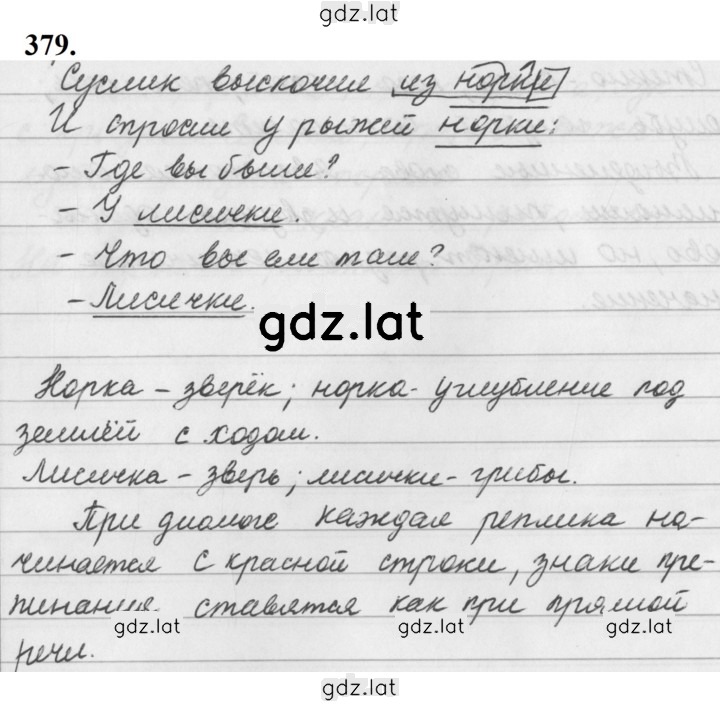 gdz.lat
379.
Суслик выскочил из норки
И спросил у рыжей норки:
- Где вы были?
- У лисички.
- Что вы ели там?
- Лисички.
gdz.lat
Норка - зверёк; норка - углубление под
землёй с ходом.
Лисичка - зверь; лисички - грибы.
При диалоге каждая реплика на-
чинается с красной строки, знаки пре-
пинания ставятся как при прямой
gdz.lat gdz.lat gdz.lat
речи.
gdz.lat